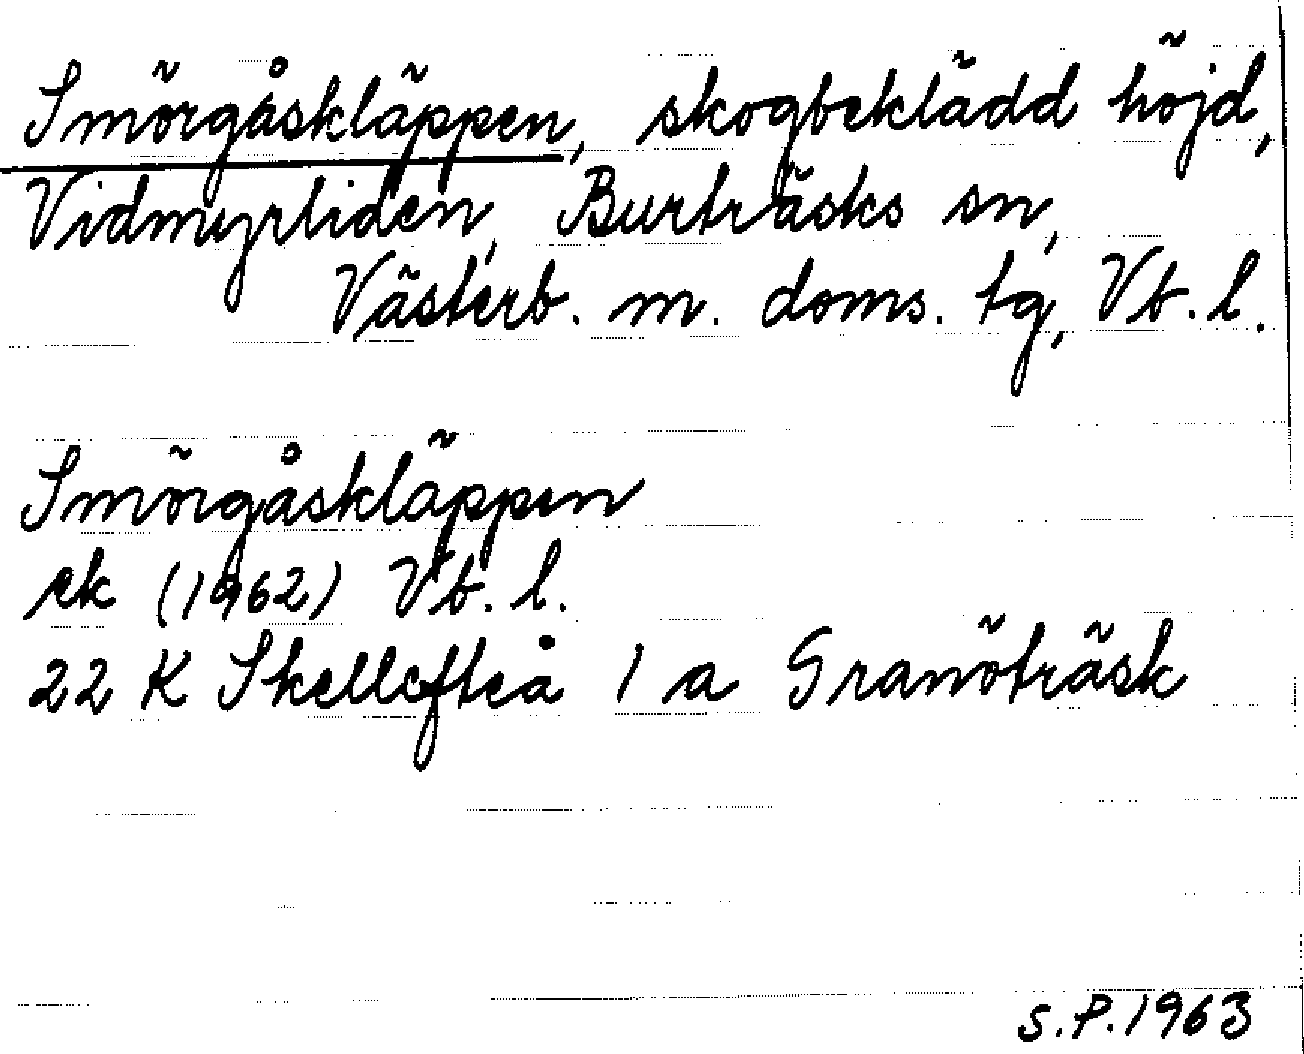 Smörgåskläppen, skogbeklädd höjd,
Vidmyrliden, Burträsks sn,
Västerb. m. doms. tg, Vb. l.
Smörgåskläppen
ek (1962) Vb. l.
22 K Skellefteå 1 a Granöträsk
S.P. 1963